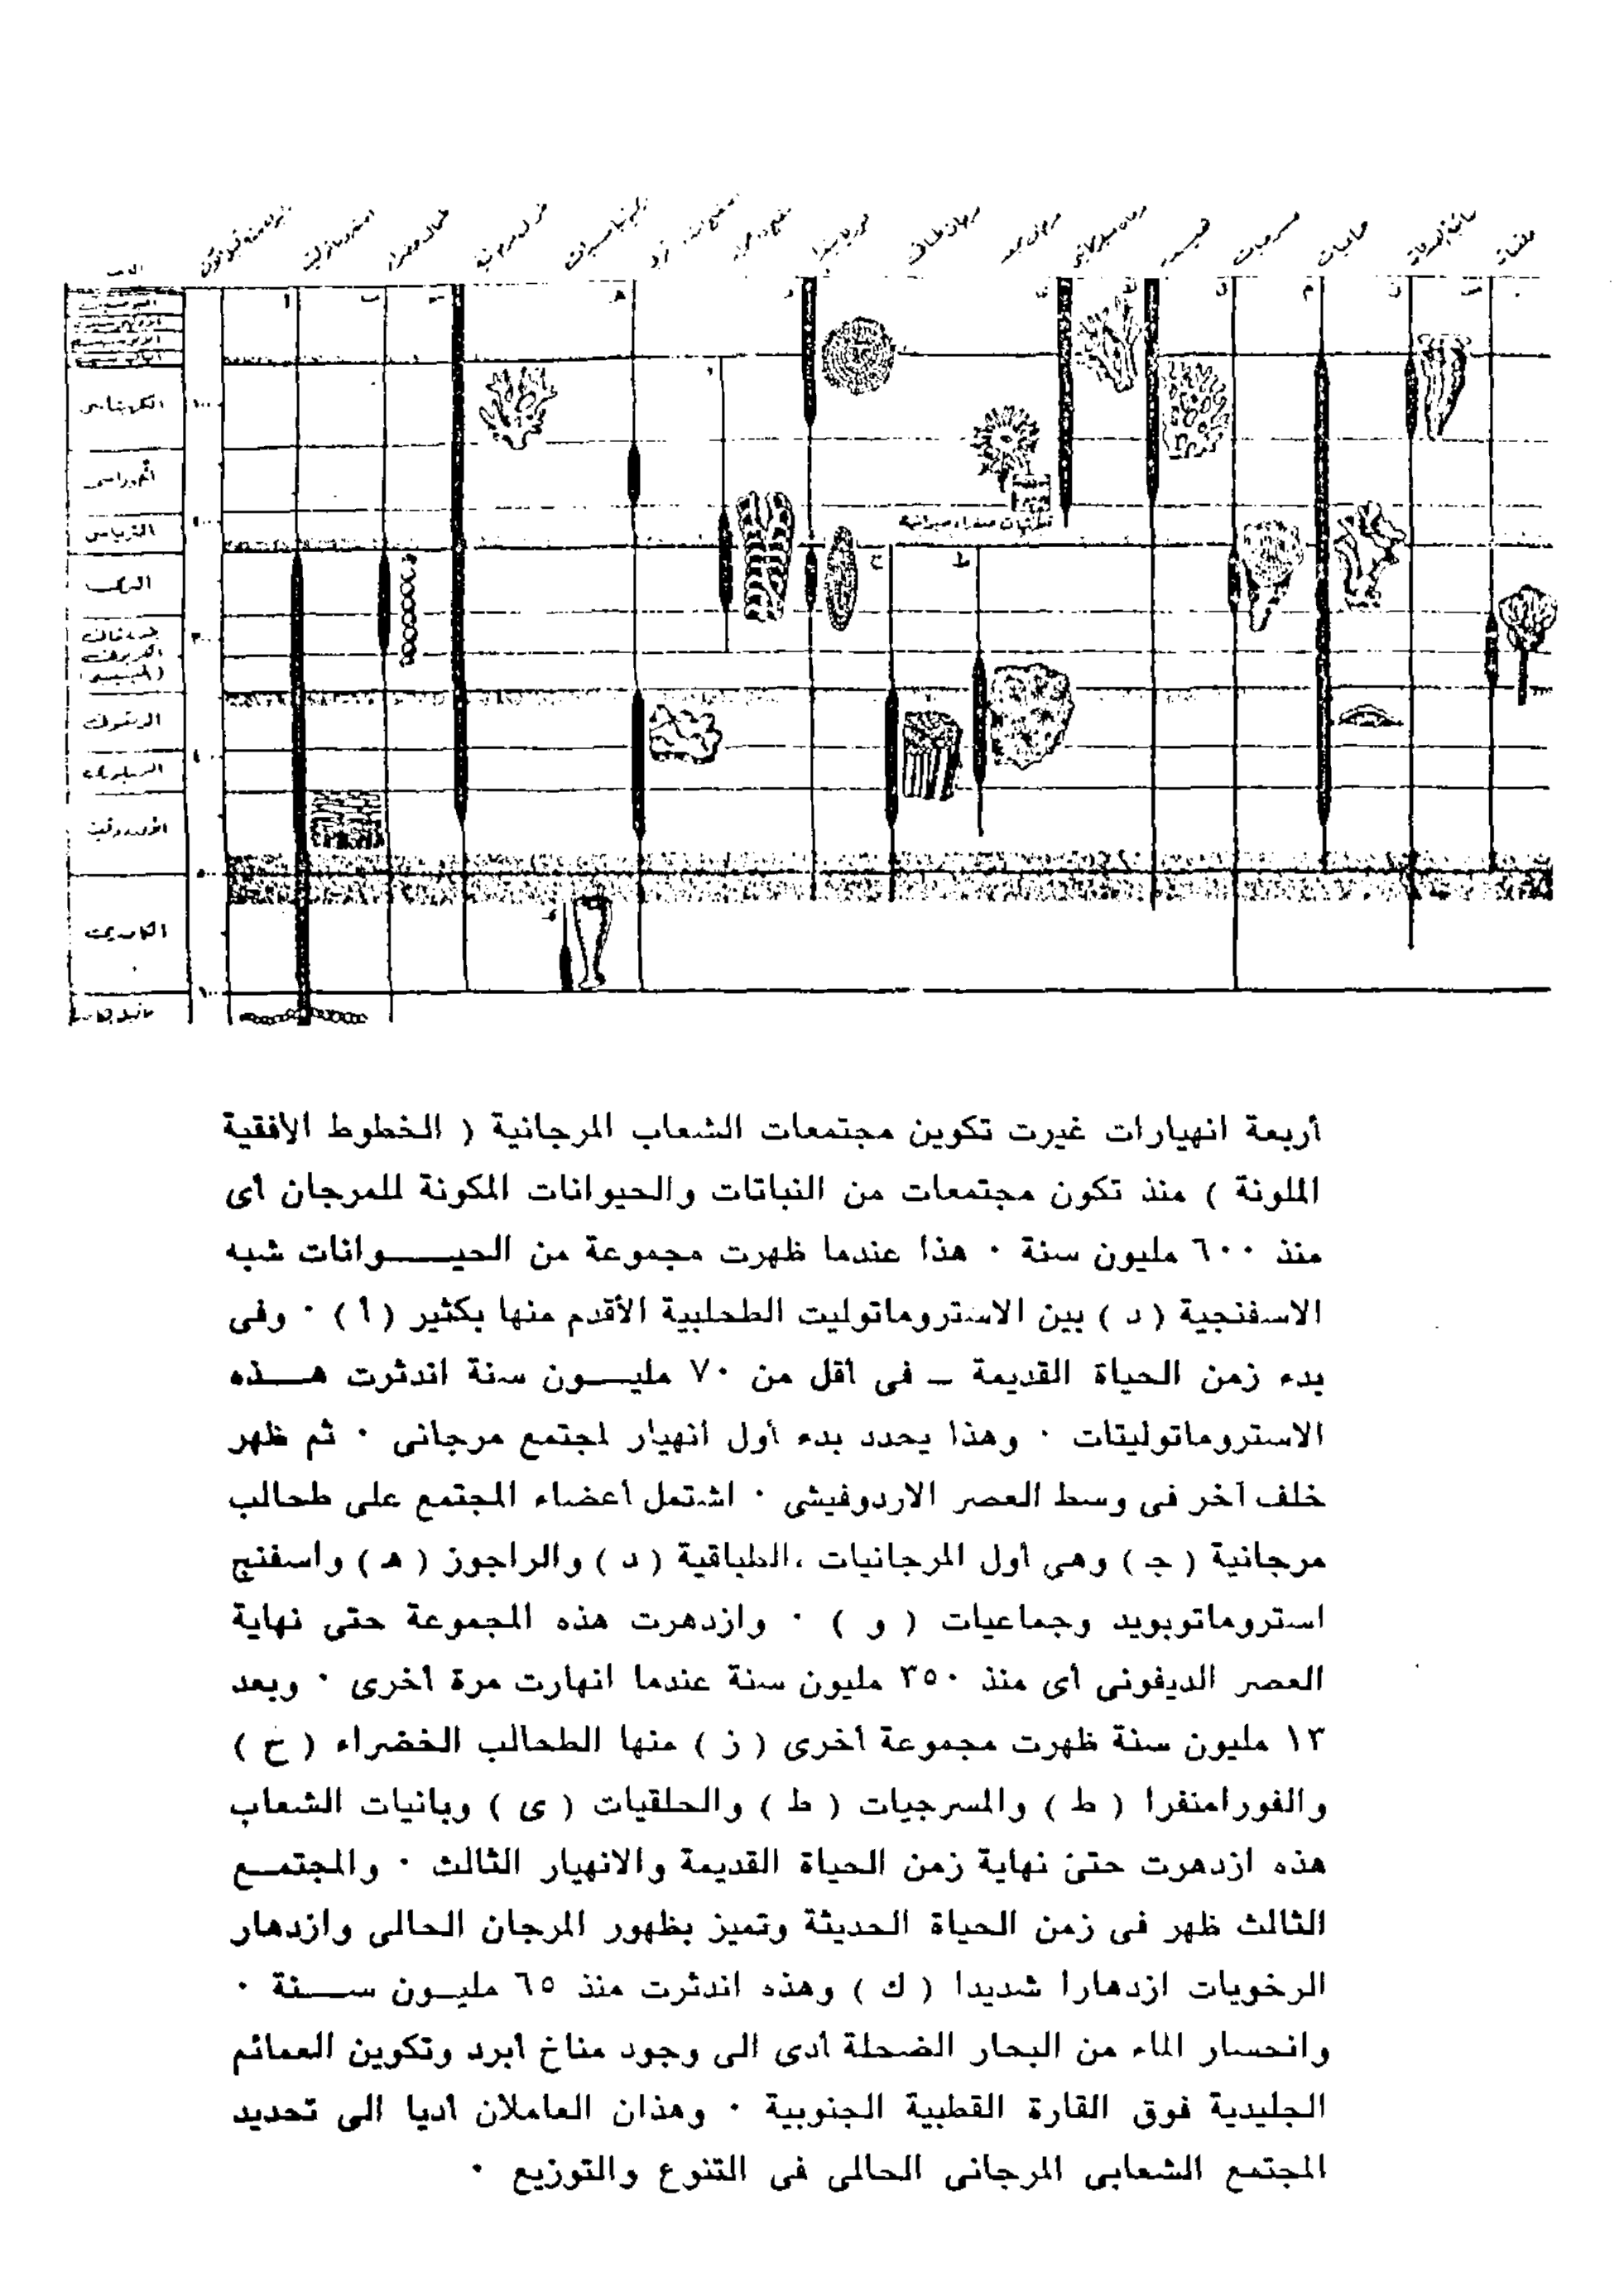 الكريتاسى
الجوراسى
الترياس
البرمى
الديفونى
السيلورى
الأوردوفيشى
الكامبرى
أربعة انهيارات غيرت تكوين مجتمعات الشعاب المرجانية ( الخطوط الافقية
الملونة ) منذ تكون مجتمعات من النباتات والحيوانات المكونة للمرجان أى
منذ ٦٠٠ مليون سنة ٠ هذا عندما ظهرت مجموعة من الحيـــوانات شبه
الاسفنجية ( د ) بين الاستروماتوليت الطحلبية الأقدم منها بكثير ( أ ) ٠ وفى
بدء زمن الحياة القديمة ـ فى أقل من ٧٠ مليــون سنة اندثرت هــذه
الاستروماتوليتات ٠ وهذا يحدد بدء أول انهيار لمجتمع مرجانى ٠ ثم ظهر
خلف آخر فى وسط العصر الاردوفيشى ٠ اشتمل أعضاء المجتمع على طحالب
مرجانية ( جـ ) وهى أول المرجانيات ،الطباقية ( د ) والراجوز ( هـ ) واسفنج
استروماتوبويد وجماعيات ( و ) ٠ وازدهرت هذه المجموعة حتى نهاية
العصر الديفونى أى منذ ٣٥٠ مليون سنة عندما انهارت مرة أخرى ٠ وبعد
١٣ مليون سنة ظهرت مجموعة أخرى ( ز ) منها الطحالب الخضراء ( خ )
والفورامنفرا ( ط ) والمسرجيات ( ط ) والحلقيات ( ى ) وبانيات الشعاب
هذه ازدهرت حتى نهاية زمن الحياة القديمة والانهيار الثالث ٠ والمجتمــع
الثالث ظهر فى زمن الحياة الحديثة وتميز بظهور المرجان الحالى وازدهار
الرخويات ازدهارا شديدا ( ك ) وهذه اندثرت منذ ٦٥ مليــون ســـنة ٠
وانحسار الماء من البحار الضحلة أدى الى وجود مناخ أبرد وتكوين العمائم
الجليدية فوق القارة القطبية الجنوبية ٠ وهذان العاملان أديا الى تحديد
المجتمع الشعابى المرجانى الحالى فى التنوع والتوزيع ٠